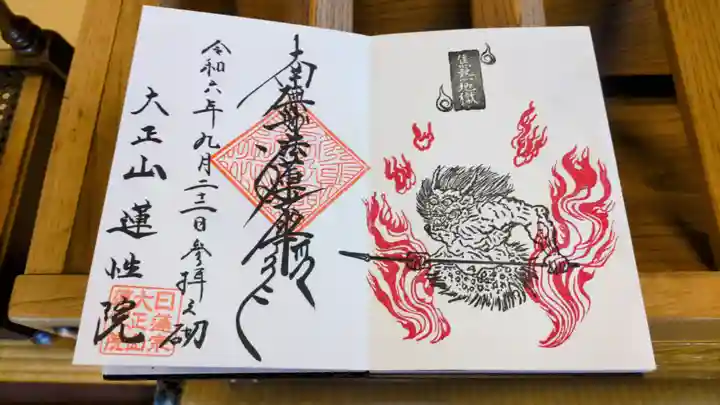 焦熱地獄
南無妙法蓮華経
令和六年九月二三日参拝之砌
大正山 蓮性院
日蓮宗
大正山
蓮性院